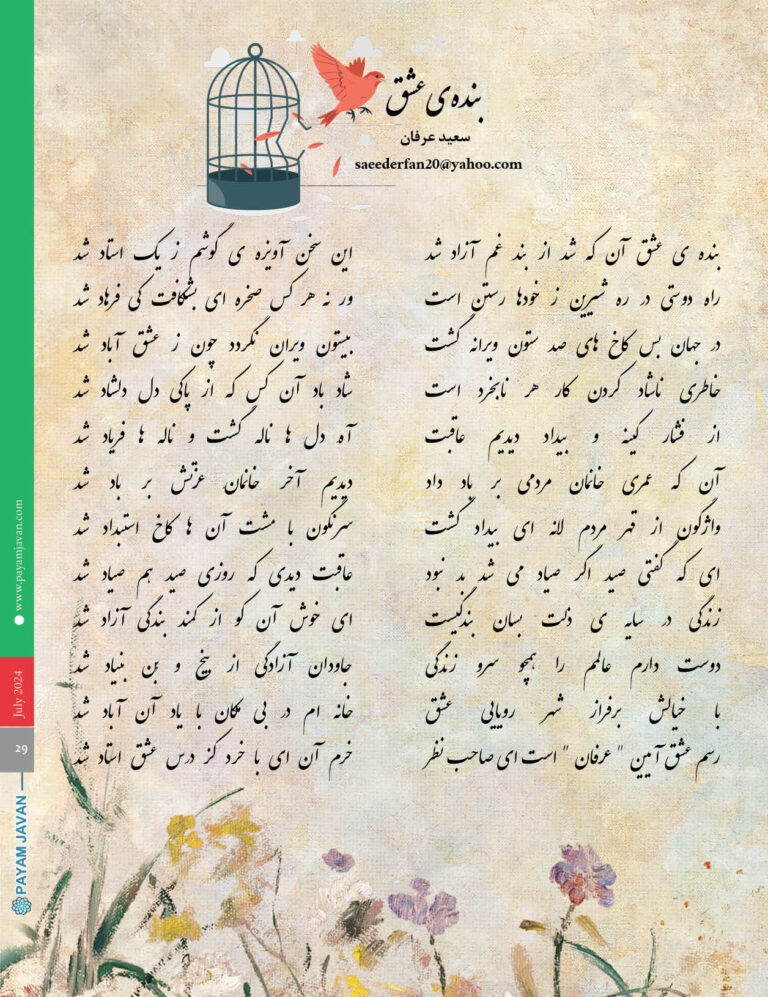 بنده‌ی عشق
سعید عرفان
saeederfan20@yahoo.com
بنده ی عشق آن که شد از بند غم آزاد شد
این سخن آویزه ی گوشم ز یک استاد شد
راه دوستی در ره شیرین ز خودها رستن است
ور نه هر کس صخره ای بشکافت کی فرهاد شد
در جهان بس کاخ های صد ستون ویرانه گشت
بیستون ویران نگردد چون ز عشق آباد شد
خاطری ناشاد کردن کار هر نابخرد است
شاد باد آن کس که از پاکی دل دلشاد شد
از فشار کینه و بیداد دیدیم عاقبت
آه دل ها ناله گشت و ناله ها فریاد شد
آن که عمری خانمان مردمی بر باد داد
دیدیم آخر خانمان عزتش بر باد شد
واژگون از قهر مردم لانه ای بیداد گشت
سرنگون با مشت آن ها کاخ استبداد شد
ای که گفتی صید اگر صیاد می شد بد نبود
عاقبت دیدی که روزی صید هم صیاد شد
زندگی در سایه ی ذلت بسان بندگیست
ای خوش آن کو از کمند بندگی آزاد شد
دوست دارم عالمم را همچو سرو زندگی
جاودان آزادگی از بیخ و بن بنیاد شد
با خیالش برفراز شهر رویایی عشق
خانه ام در بی مکان با یاد آن آباد شد
رسم عشق آمین " عرفان " است ای صاحب نظر
خرم آن ای با خرد کز درس عشق استاد شد
www.payamjavan.com
July 2024
29
PAYAM JAVAN